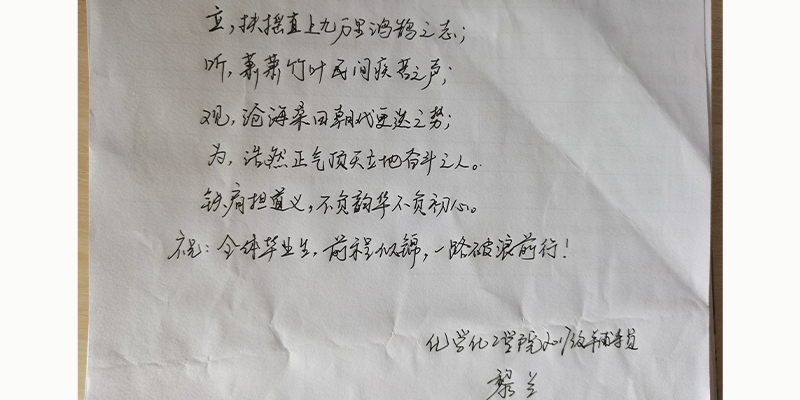 立，扶摇直上九万里鸿鹄之志；
听，萧萧竹叶民间疾苦之声；
观，沧海桑田朝代更迭之势；
为，浩然正气顶天立地奋斗之人。
铁肩担道义，不负韶华不负初心。
祝：全体毕业生，前程似锦，一路破浪前行！
化学化工学院2017级辅导员
黎兰